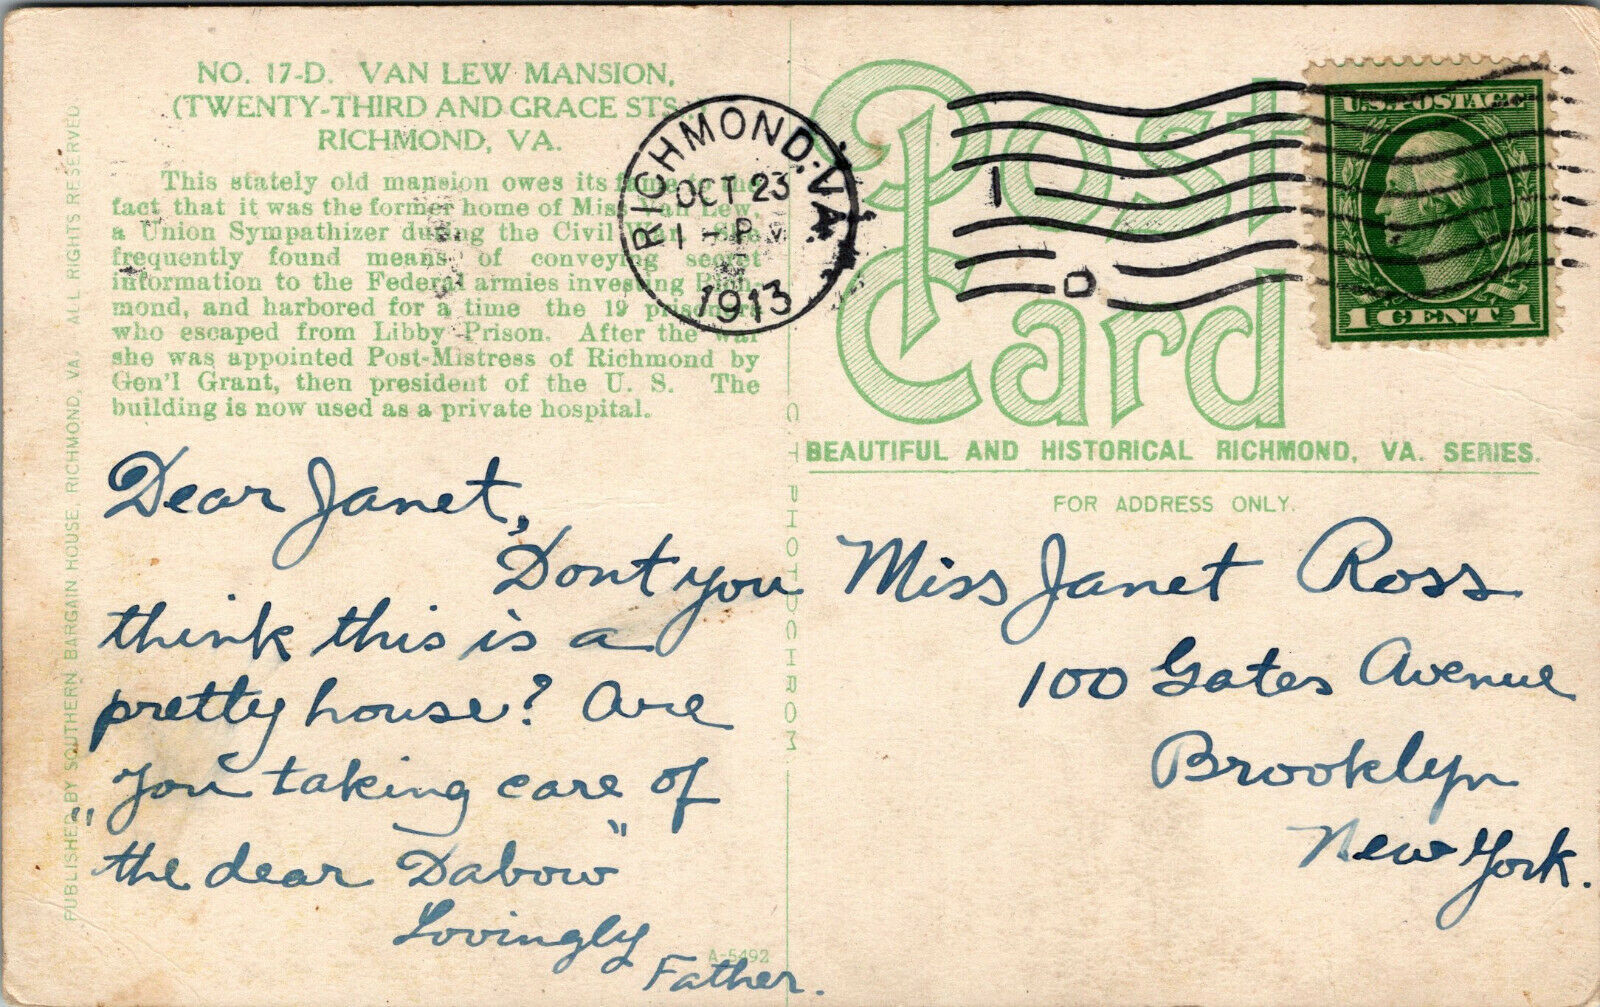 NO. 17-D. VAN LEW MANSION,
(TWENTY-THIRD AND GRACE STS.)
RICHMOND, VA.
This stately old mansion owes its fame to the
fact that it was the former home of Miss Van Lew,
a Union Sympathizer during the Civil War. She
frequently found means of conveying secret
information to the Federal armies investing Rich-
mond, and harbored for a time the 19 prisoners
who escaped from Libby Prison. After the war
she was appointed Post-Mistress of Richmond by
Gen'l Grant, then president of the U. S. The
building is now used as a private hospital.
PUBLISHED BY SOUTHERN BARGAIN HOUSE, RICHMOND, VA. ALL RIGHTS RESERVED
Dear Janet,
Dont you
think this is a
pretty house? Are
you taking care of
"the dear Dabow"
Lovingly
Father.
A-5492
C T PHOTOCHROM
RICHMOND, VA.
OCT 23
1 - P M
1913
1
D
Post
Card
U.S. POSTAGE
1 CENT 1
BEAUTIFUL AND HISTORICAL RICHMOND, VA. SERIES.
FOR ADDRESS ONLY.
Miss Janet Ross
100 Gates Avenue
Brooklyn
New York.